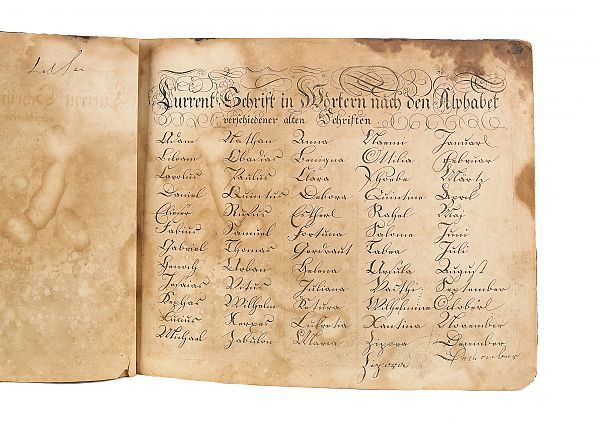 Current Schrift in Wörtern nach den Alphabet
verschiedener alten Schriften
Adam Nathan Anna Naemi Januari
Bileam Obadias Benigna Ottilia Februar
Carolus Paulus Clara Phoebe Märtz
Daniel Quintus Debora Quintine April
Rufus Esther Rahel Maj
Fabius Samuel Fortuna Salome Juni
Gabriel Thomas Gerdraut Tabea Juli
Henoch Urban Helena Ursula August
Jesaias Vitus Juliana Vasthi September
Kephas Wilhelm Ketura Wilhelmine October
Lucius Xerxes Lucretia Xantina November
Michael Zabulon Maria Zipora December
Zipora December